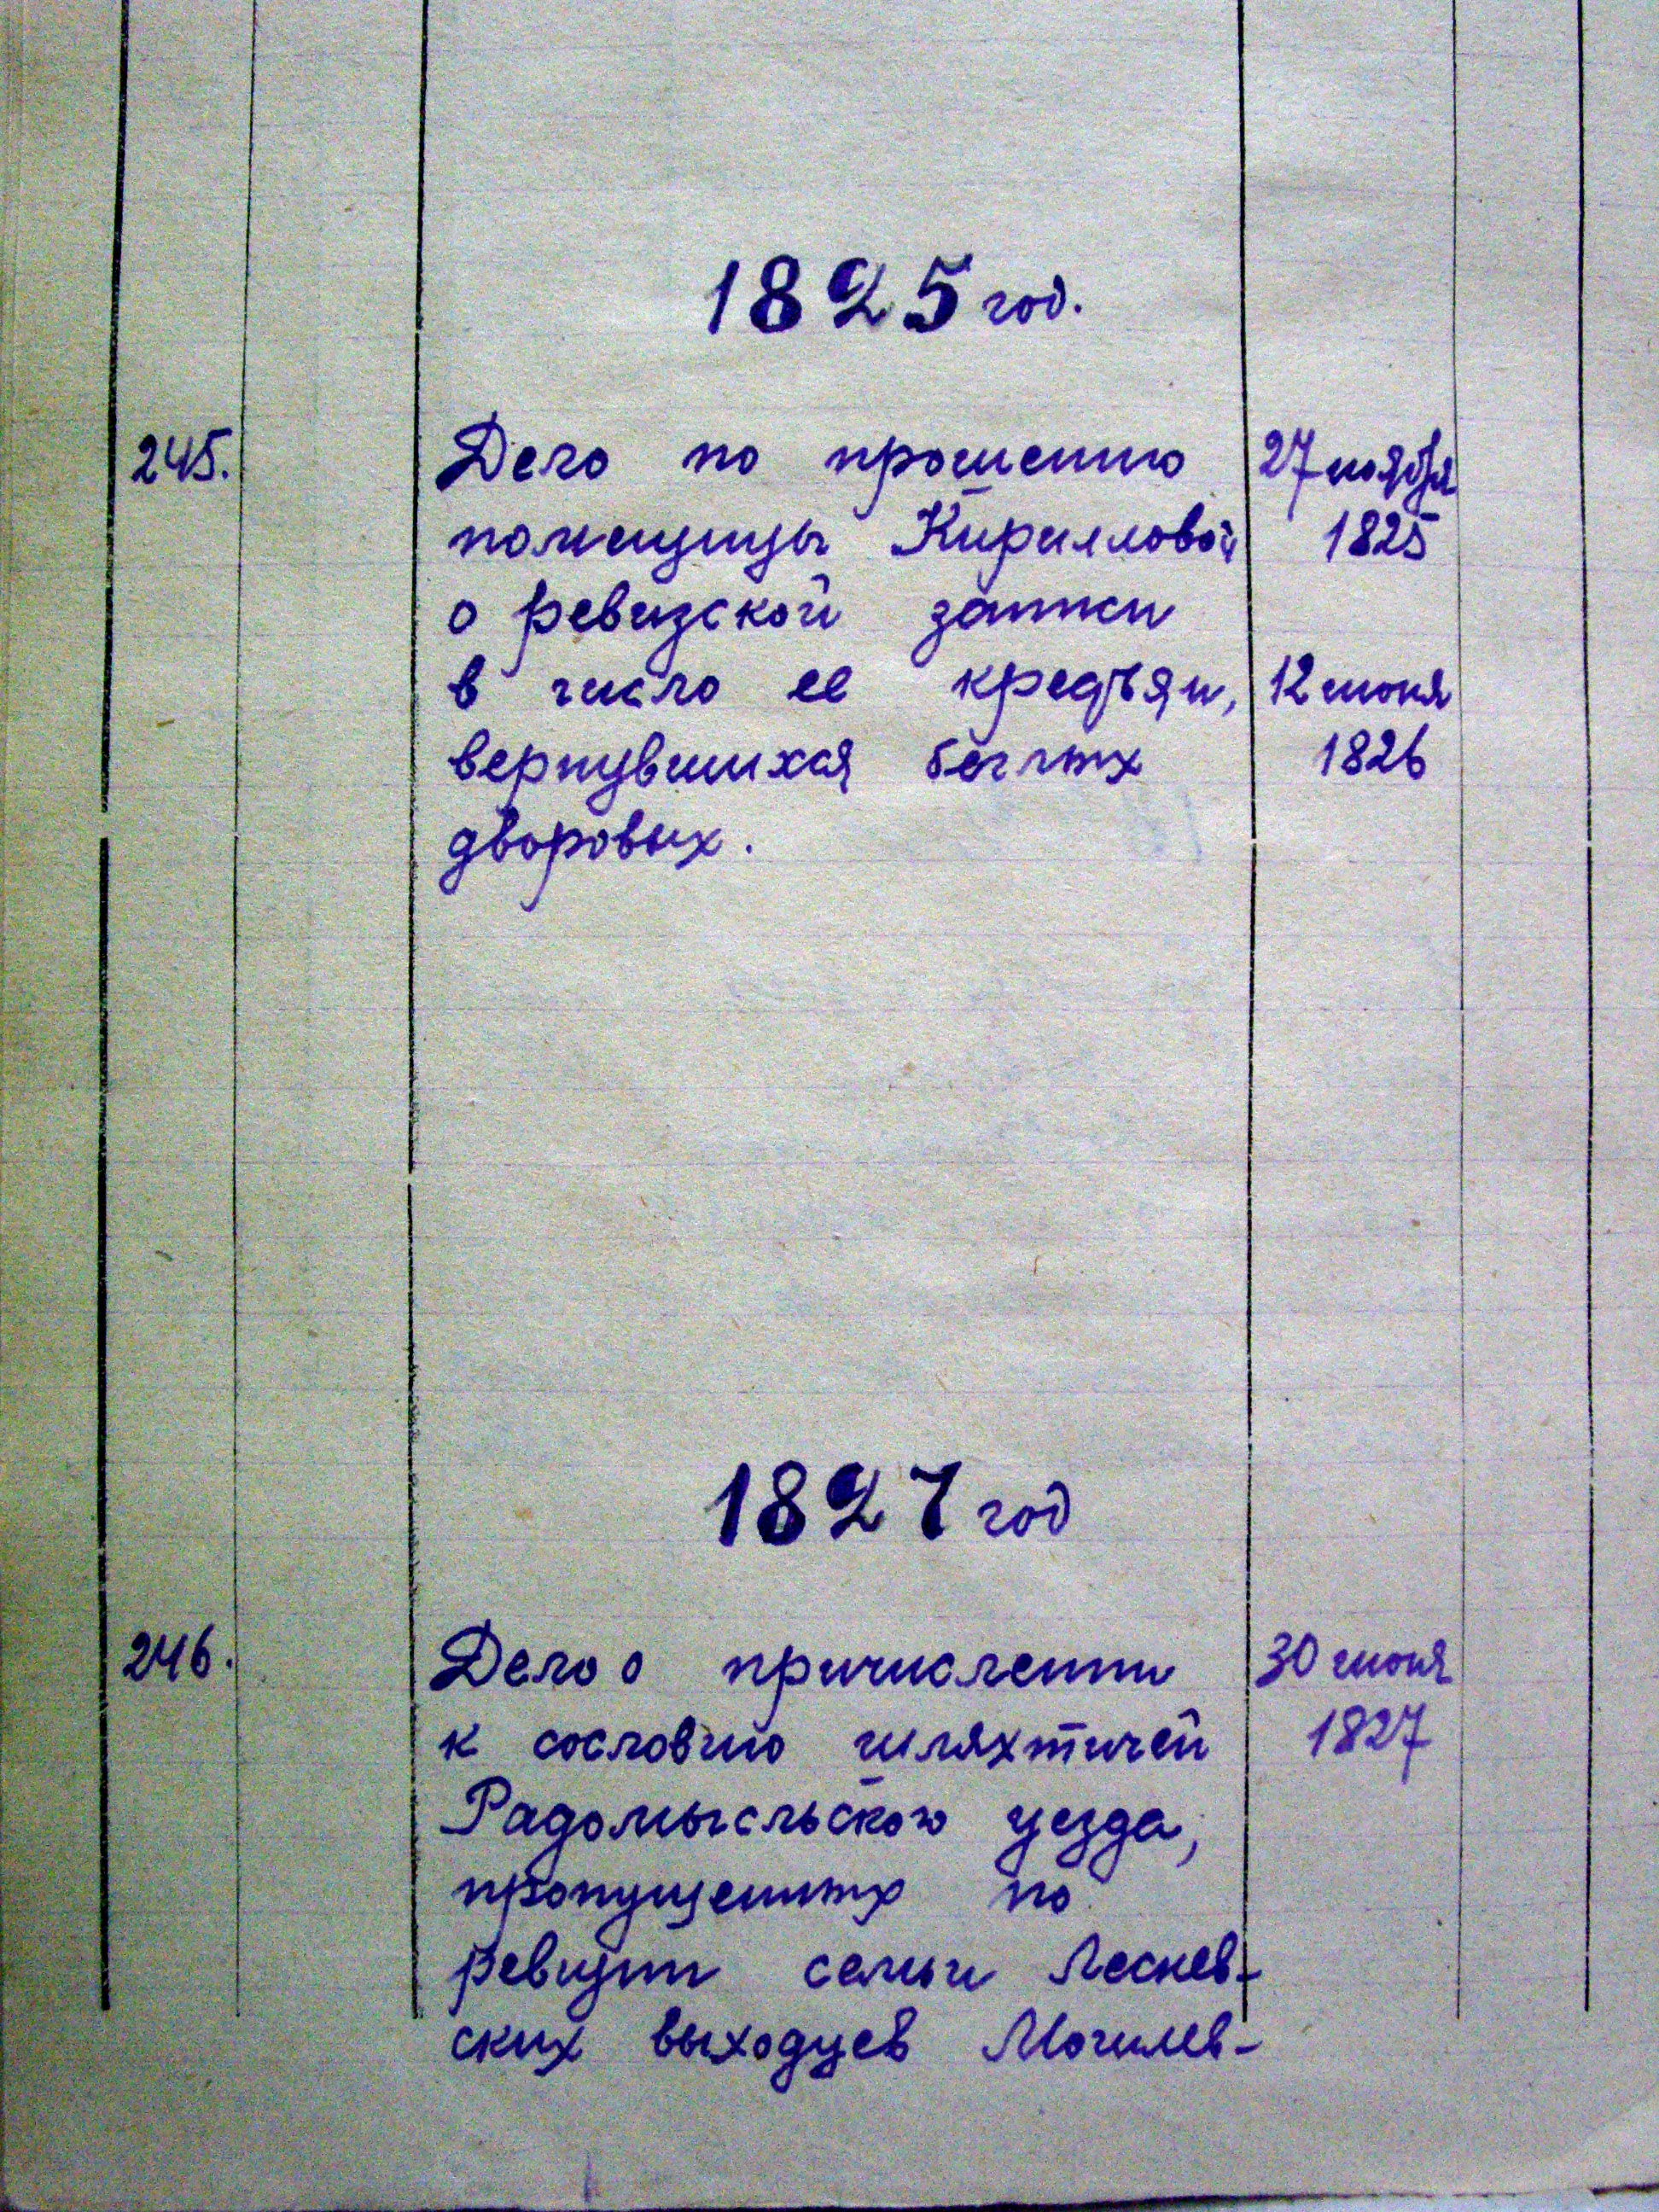 1825 год.
245. Дело по прошению 27 ноября
помещицы Кирилловой 1825
о ревизской записи
в число ее крестьян, 12 июня
вернувшихся беглых 1826
дворовых.
1827 год
246. Дело о причислении 30 июня
к сословию шляхтичей 1827
Радомысльского уезда,
пропущенных по
ревизии семьи Лескев-
ских выходцев Могилев-